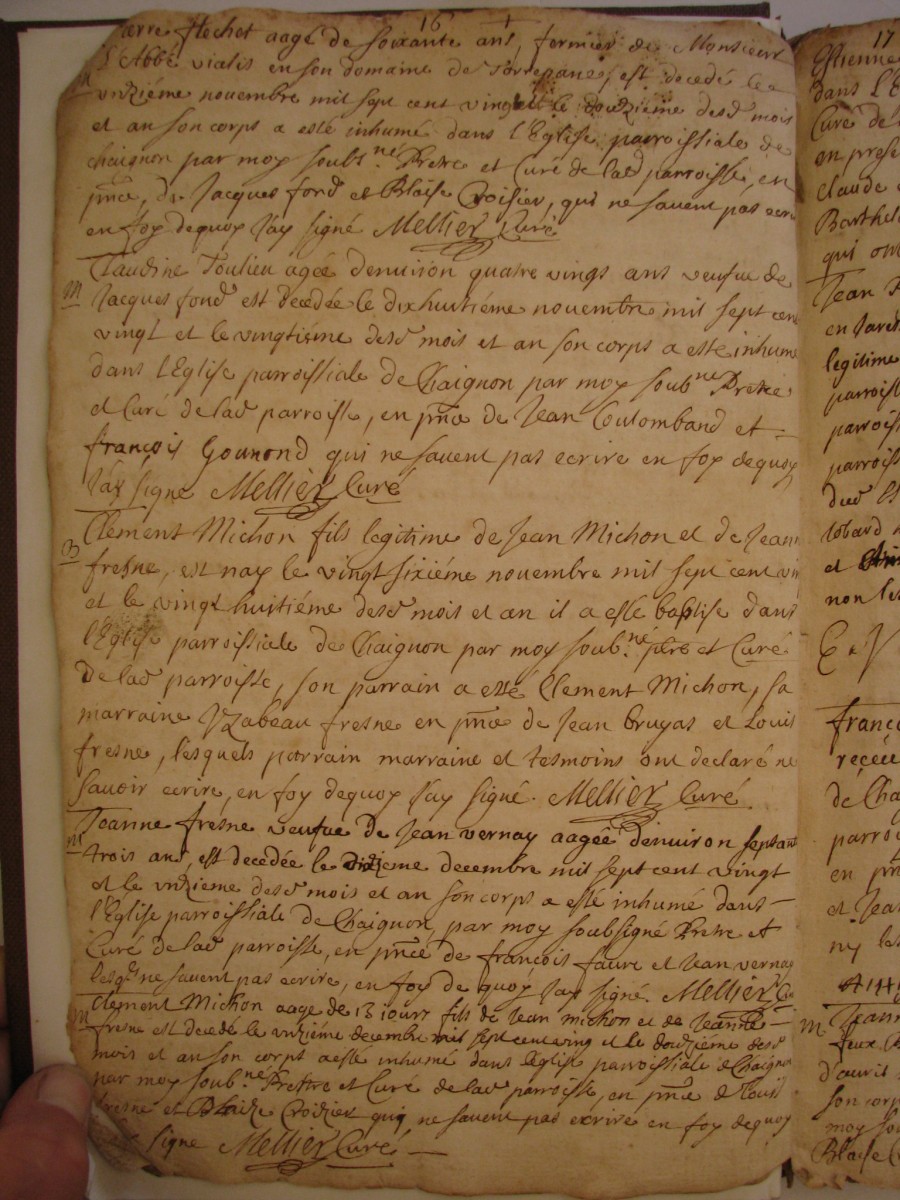 16
pierre flechet aagé de soixante ans, fermier de Monsieur
M
L'Abbé vialis en son domaine de Torrepane, est decedé le
vnziéme novembre mil sept cent vingt et le douziéme desd mois
et an son corps a esté inhumé dans l'Eglise parroissiale de
chaignon par moy soubs.né Pretre et Curé de lad parroisse, en
pñce, de Jacques fond et Blaise Croisier, qui ne savent pas ecrire
en foy dequoy J'ay signé Mellier Curé
Claudine Toulieu agéé denuiron quatre vingts ans veufue de
M
Jacques fond est decedée le dixhuitiéme novembre mil sept cent
vingt et le vingtiéme desd mois et an son corps a esté inhumé
dans l'Eglise parroissiale de Chaignon par moy soub.né Pretre
et Curé de lad parroisse, en pñce de Jean Coulomband et
françois Gounond qui ne savent pas ecrire en foy dequoy
J'ay signé Mellier Curé
Clement Michon fils legitime de Jean Michon et de Jeanne
B
fresne, est nay le vingt sixiéme novembre mil sept cent vin
et le vingt huitiéme desd mois et an il a esté baptisé dans
l'Eglise parroissiale de Chaignon par moy soub.né ptre et Curé
de lad parroisse, son parrain a esté Clement Michon, sa
marraine Yzabeau fresne en pñce de Jean bruyas et Louis
fresne, lesquels parrain marraine et tesmoins ont declaré ne
savoir ecrire, en foy dequoy J'ay signé. Mellier Curé
Joanne fresne veufue de Jean vernay aagéé denuiron septant
M
trois ans, est decedée le dixieme decembre mil sept cent vingt
et le vnzieme desd mois et an son corps a esté inhumé dans
l'Eglise parroissiale de Chaignon, par moy soubsigné Pretre et
Curé de lad parroisse, en pñce de françois faure et Jean vernay
lesq.ls ne savent pas ecrire, en foy de quoy J'ay signé. Mellier Cu
Clement Michon aagé de 15 iours fils de Jean michon et de Jeanne
M
fresne est decedé le vnziéme decembre mil sept cent vingt et le douziéme desd
mois et an son corps a esté inhumé dans l'eglise parroissiale de Chaignon
par moy soub.né Prettre et Curé de lad parroisse, en pñce de Louis
fresne et Blaize Croizier qui ne savent pas ecrire en foy dequoy
signé Mellier Curé
17
Estienne
dans l'E
Curé de
en prese
claude
Barthel
qui ont
Jean
en
legitime
parroiss
parroiss
parroiss
du
et
non les
franço
reçeu
de Cha
parroi
en pñ
et Jea
ny les
M Jeann
feux
d'auril
son corp
moy so
Blaise C